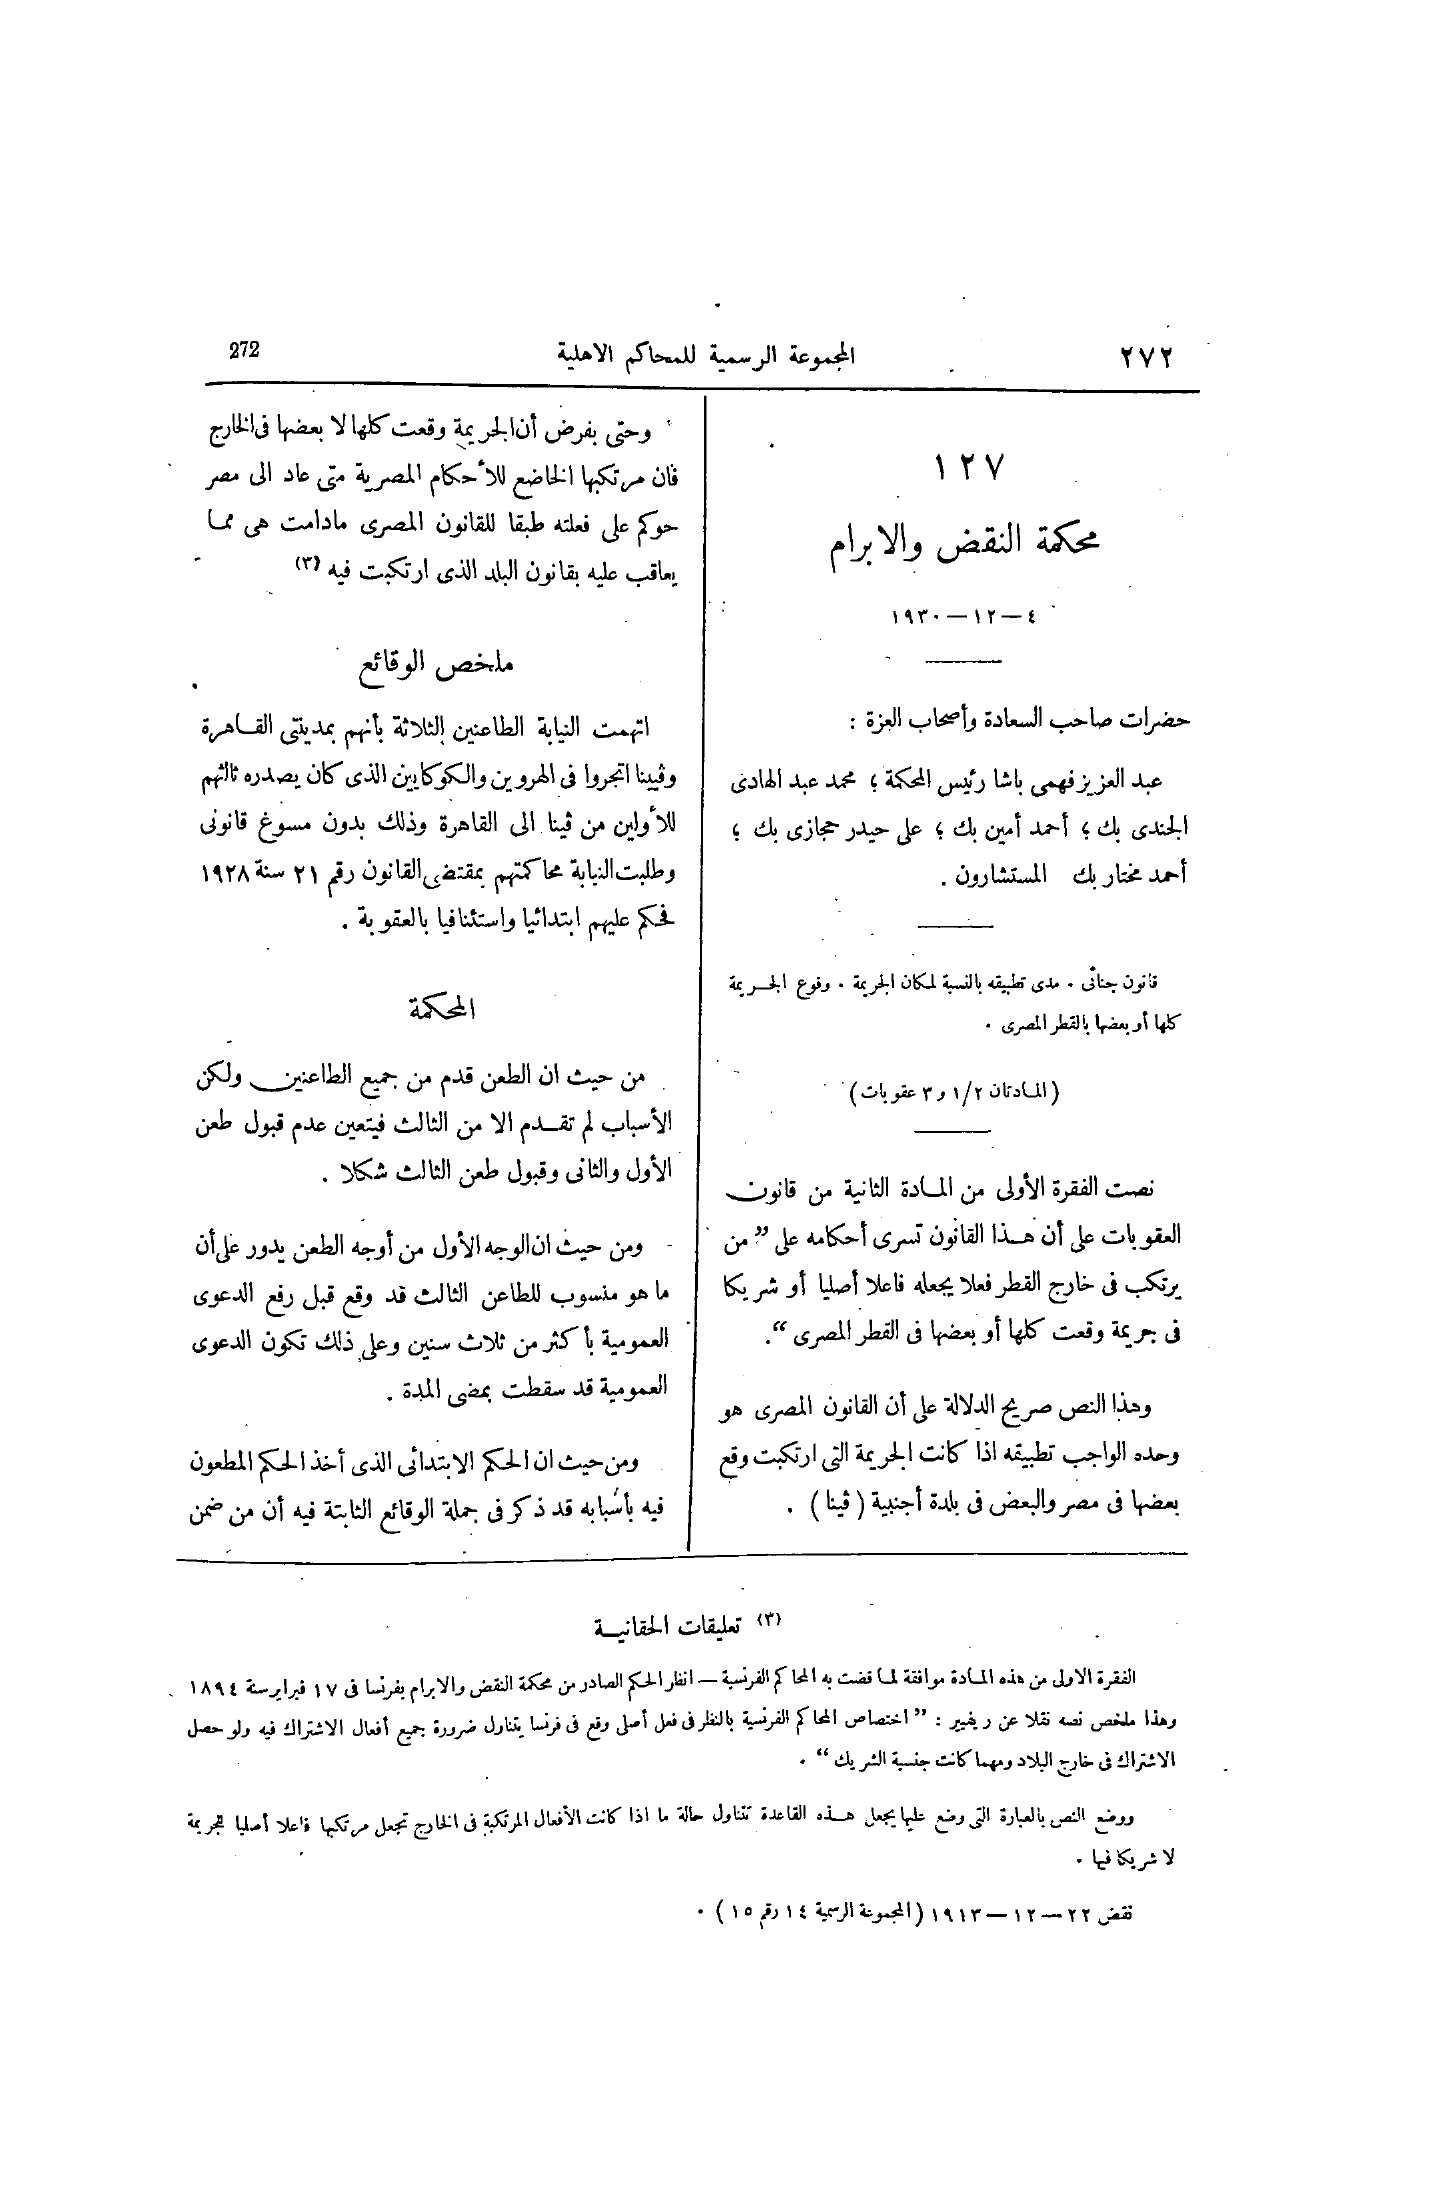 ٢٧٢
المجموعة الرسمية للمحاكم الاهلية
272
١٢٧
محكمة النقض والابرام
٤ — ١٢ — ١٩٣٠
حضرات صاحب السعادة وأصحاب العزة :
عبد العزيز فهمى باشا رئيس المحكمة ؛ محمد عبد الهادى
الجندى بك ؛ أحمد أمين بك ؛ على حيدر حجازى بك ؛
أحمد مختار بك المستشارون .
قانون جنائى . مدى تطبيقه بالنسبة لمكان الجريمة . وقوع الجريمة
كلها أو بعضها بالقطر المصرى .
( المادتان ١/٢ و ٣ عقوبات )
نصت الفقرة الأولى من المادة الثانية من قانون
العقوبات على أن هذا القانون تسرى أحكامه على ” من
يرتكب فى خارج القطر فعلا يجعله فاعلا أصليا أو شريكا
فى جريمة وقعت كلها أو بعضها فى القطر المصرى “.
وهذا النص صريح الدلالة على أن القانون المصرى هو
وحده الواجب تطبيقه اذا كانت الجريمة التى ارتكبت وقع
بعضها فى مصر والبعض فى بلدة أجنبية ( ڤينا ) .
وحتى بفرض أن الجريمة وقعت كلها لا بعضها فى الخارج
فان مرتكبها الخاضع للأحكام المصرية متى عاد الى مصر
حوكم على فعلته طبقا للقانون المصرى مادامت هى مما
يعاقب عليه بقانون البلد الذى ارتكبت فيه (٣)
ملخص الوقائع
اتهمت النيابة الطاعنين الثلاثة بأنهم بمدينتى القاهرة
وڤيينا اتجروا فى الهروين والكوكايين الذى كان يصدره ثالثهم
للأولين من ڤينا الى القاهرة وذلك بدون مسوغ قانونى
وطلبت النيابة محاكمتهم بمقتضى القانون رقم ٢١ سنة ١٩٢٨
فحكم عليهم ابتدائيا واستئنافيا بالعقوبة .
المحكمة
من حيث ان الطعن قدم من جميع الطاعنين ولكن
الأسباب لم تقدم الا من الثالث فيتعين عدم قبول طعن
الأول والثانى وقبول طعن الثالث شكلا .
ومن حيث ان الوجه الأول من أوجه الطعن يدور على أن
ما هو منسوب للطاعن الثالث قد وقع قبل رفع الدعوى
العمومية بأكثر من ثلاث سنين وعلى ذلك تكون الدعوى
العمومية قد سقطت بمضى المدة .
ومن حيث ان الحكم الابتدائى الذى أخذ الحكم المطعون
فيه بأسبابه قد ذكر فى جملة الوقائع الثابتة فيه أن من ضمن
(٣) تعليقات الحقانية
الفقرة الاولى من هذه المادة موافقة لما قضت به المحاكم الفرنسية — انظر الحكم الصادر من محكمة النقض والابرام بفرنسا فى ١٧ فبراير سنة ١٨٩٤
وهذا ملخص نصه نقلا عن ريفيير : ” اختصاص المحاكم الفرنسية بالنظر فى فعل أصلى وقع فى فرنسا يتناول ضرورة جميع أفعال الاشتراك فيه ولو حصل
الاشتراك فى خارج البلاد ومهما كانت جنسية الشريك “ .
ووضع النص بالعبارة التى وضع عليها يجعل هذه القاعدة تتناول حالة ما اذا كانت الأفعال المرتكبة فى الخارج تجعل مرتكبها فاعلا أصليا للجريمة
لا شريكا فيها .
نقض ٢٢ — ١٢ — ١٩١٣ ( المجموعة الرسمية ١٤ رقم ١٥ ) .